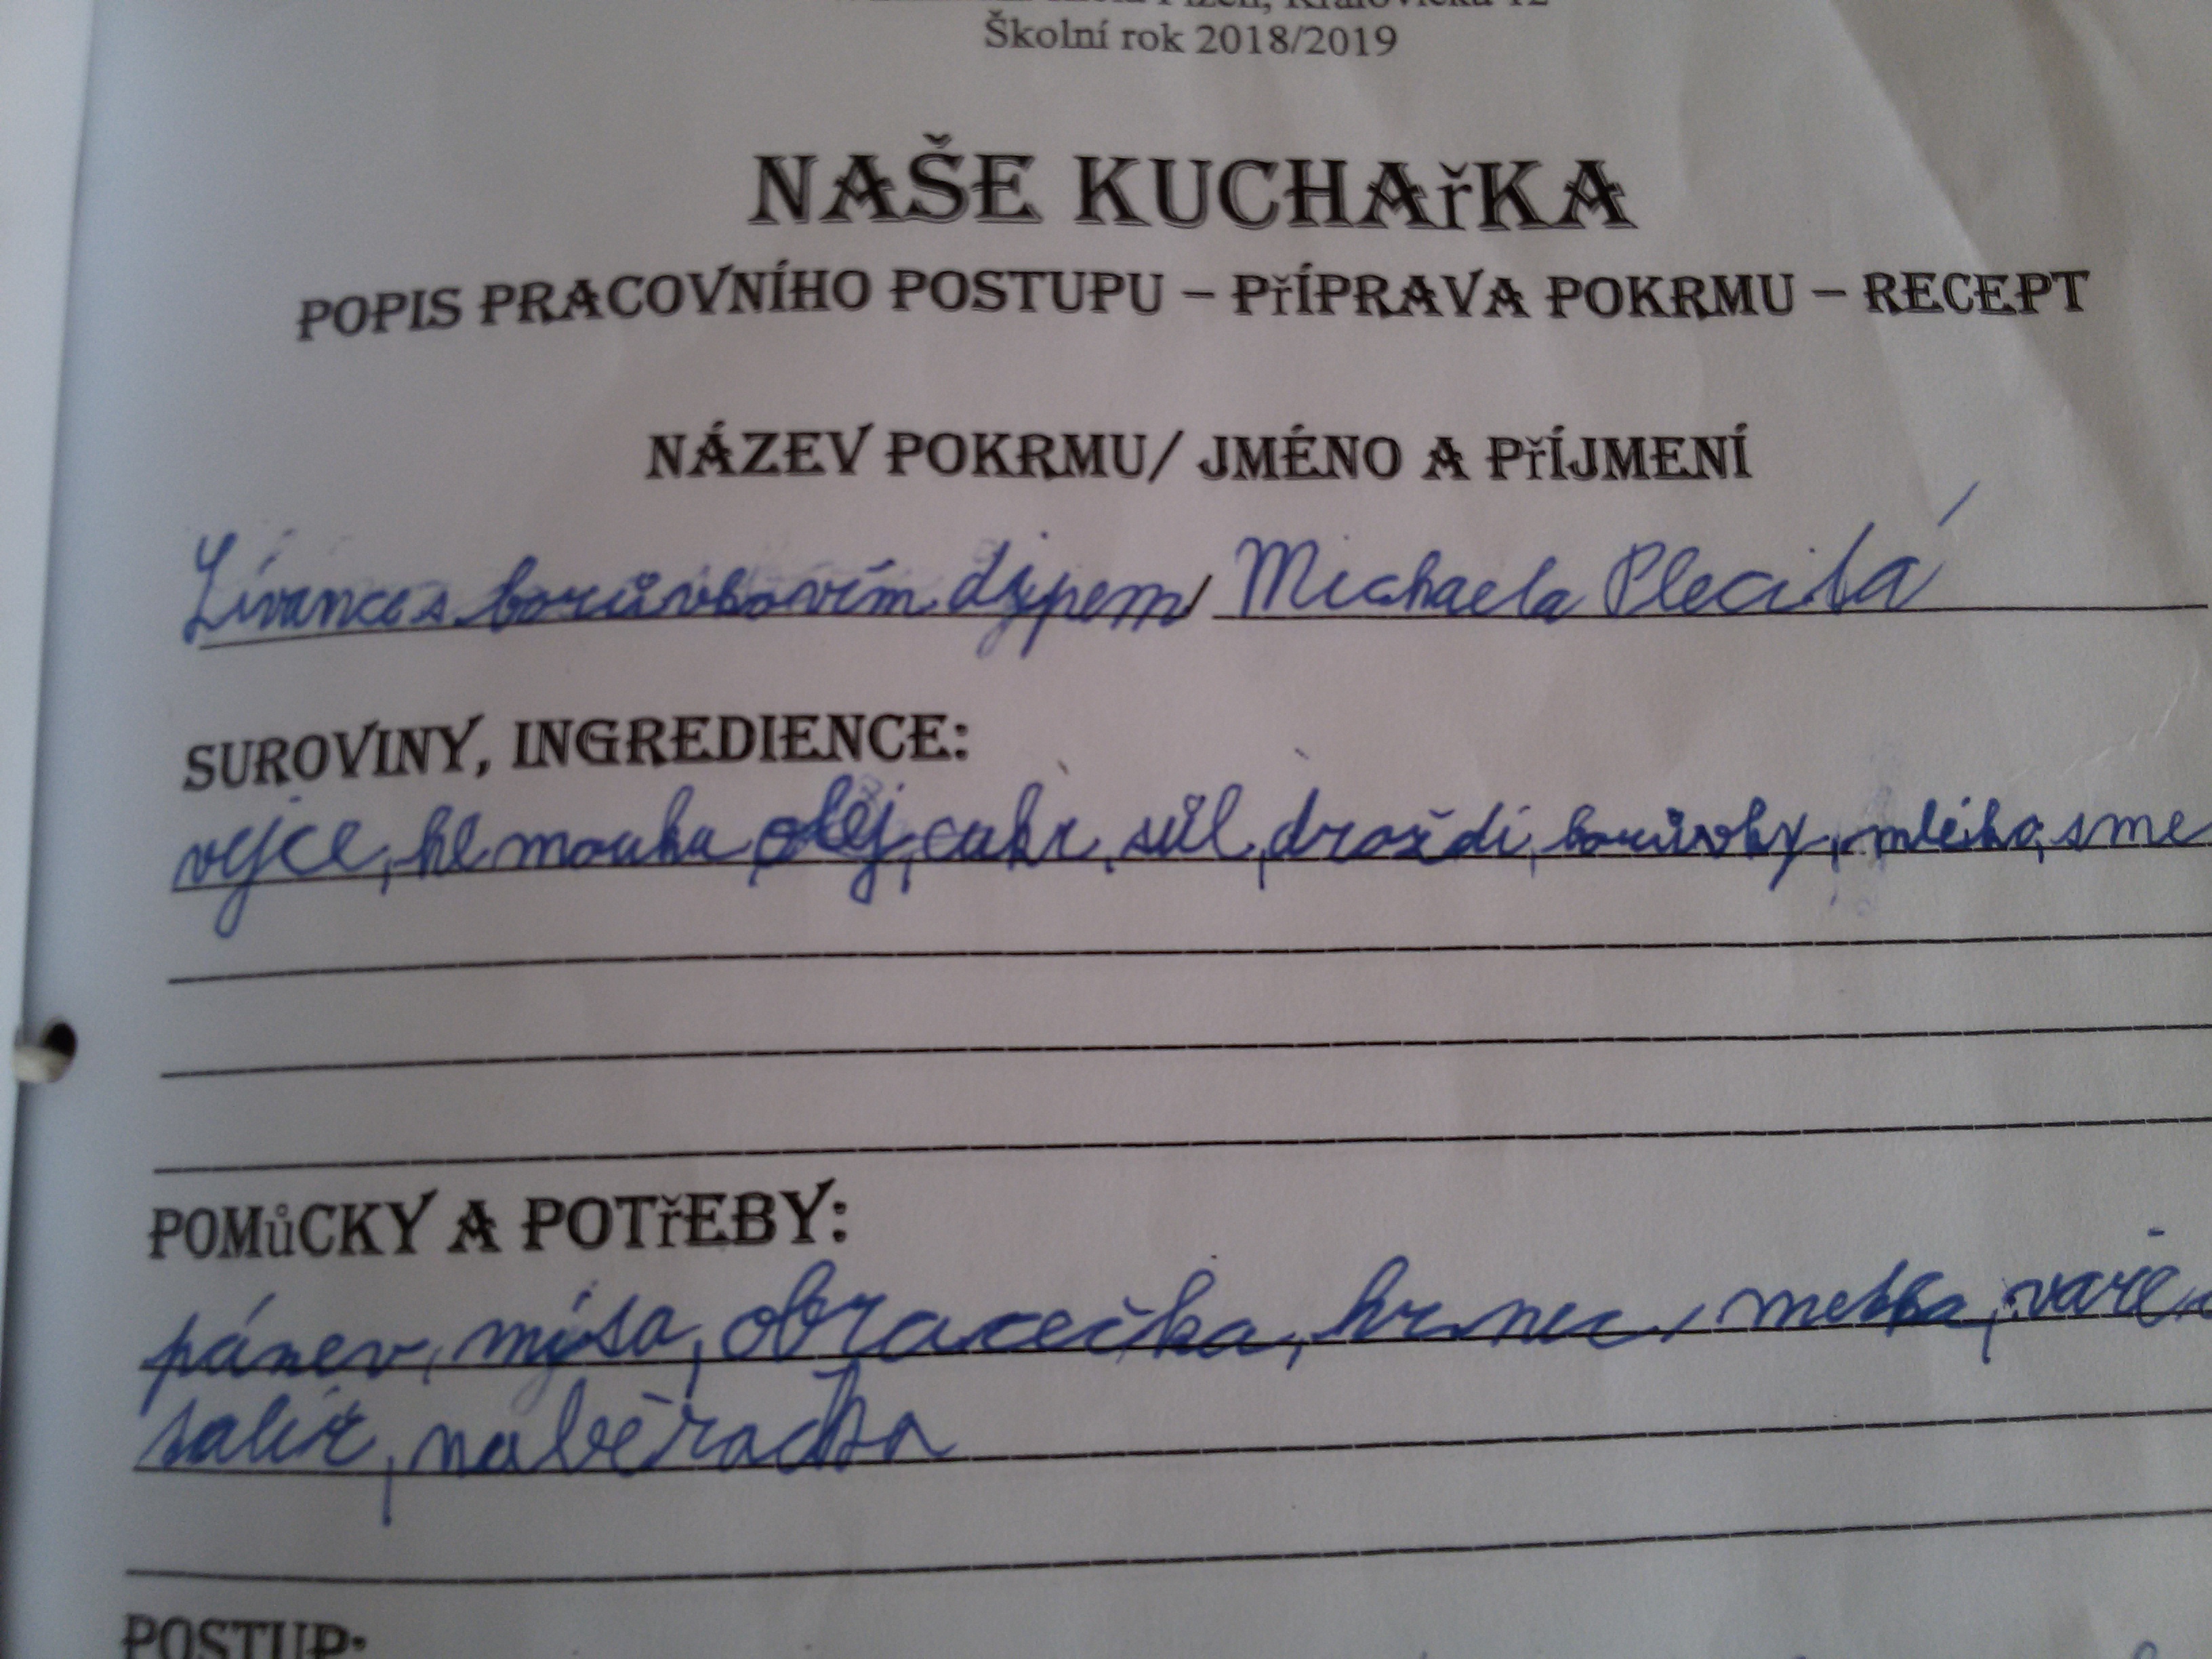 Školní rok 2018/2019
NAŠE KUCHAŘKA
POPIS PRACOVNÍHO POSTUPU – PŘÍPRAVA POKRMU – RECEPT
NÁZEV POKRMU/ JMÉNO A PŘÍJMENÍ
Lívance s borůvkovím džpem/ Michaela Plecitá
SUROVINY, INGREDIENCE:
vejce, hl mouka, olej, cukr, sůl, droždí, borůvky, mléko, sme
POMŮCKY A POTŘEBY:
pánev, mýsa, obracečka, hrnec, metka, vaře
talíř, naběračka
POSTUP: